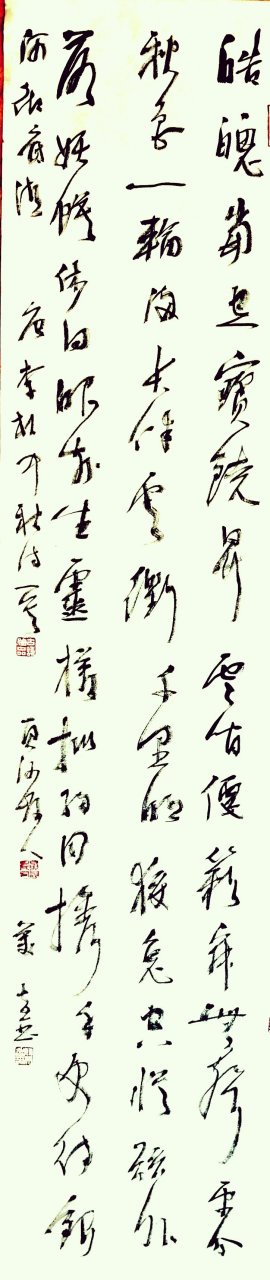 皓魄當空寶鏡昇雲間僊籟寂無聲平分
秋色一輪滿長伴雲衢千里明狡兔空從弦外
落妖蟆休向眼前生靈槎擬約同攜手更待銀
河澈底清 李朴中秋詩一首